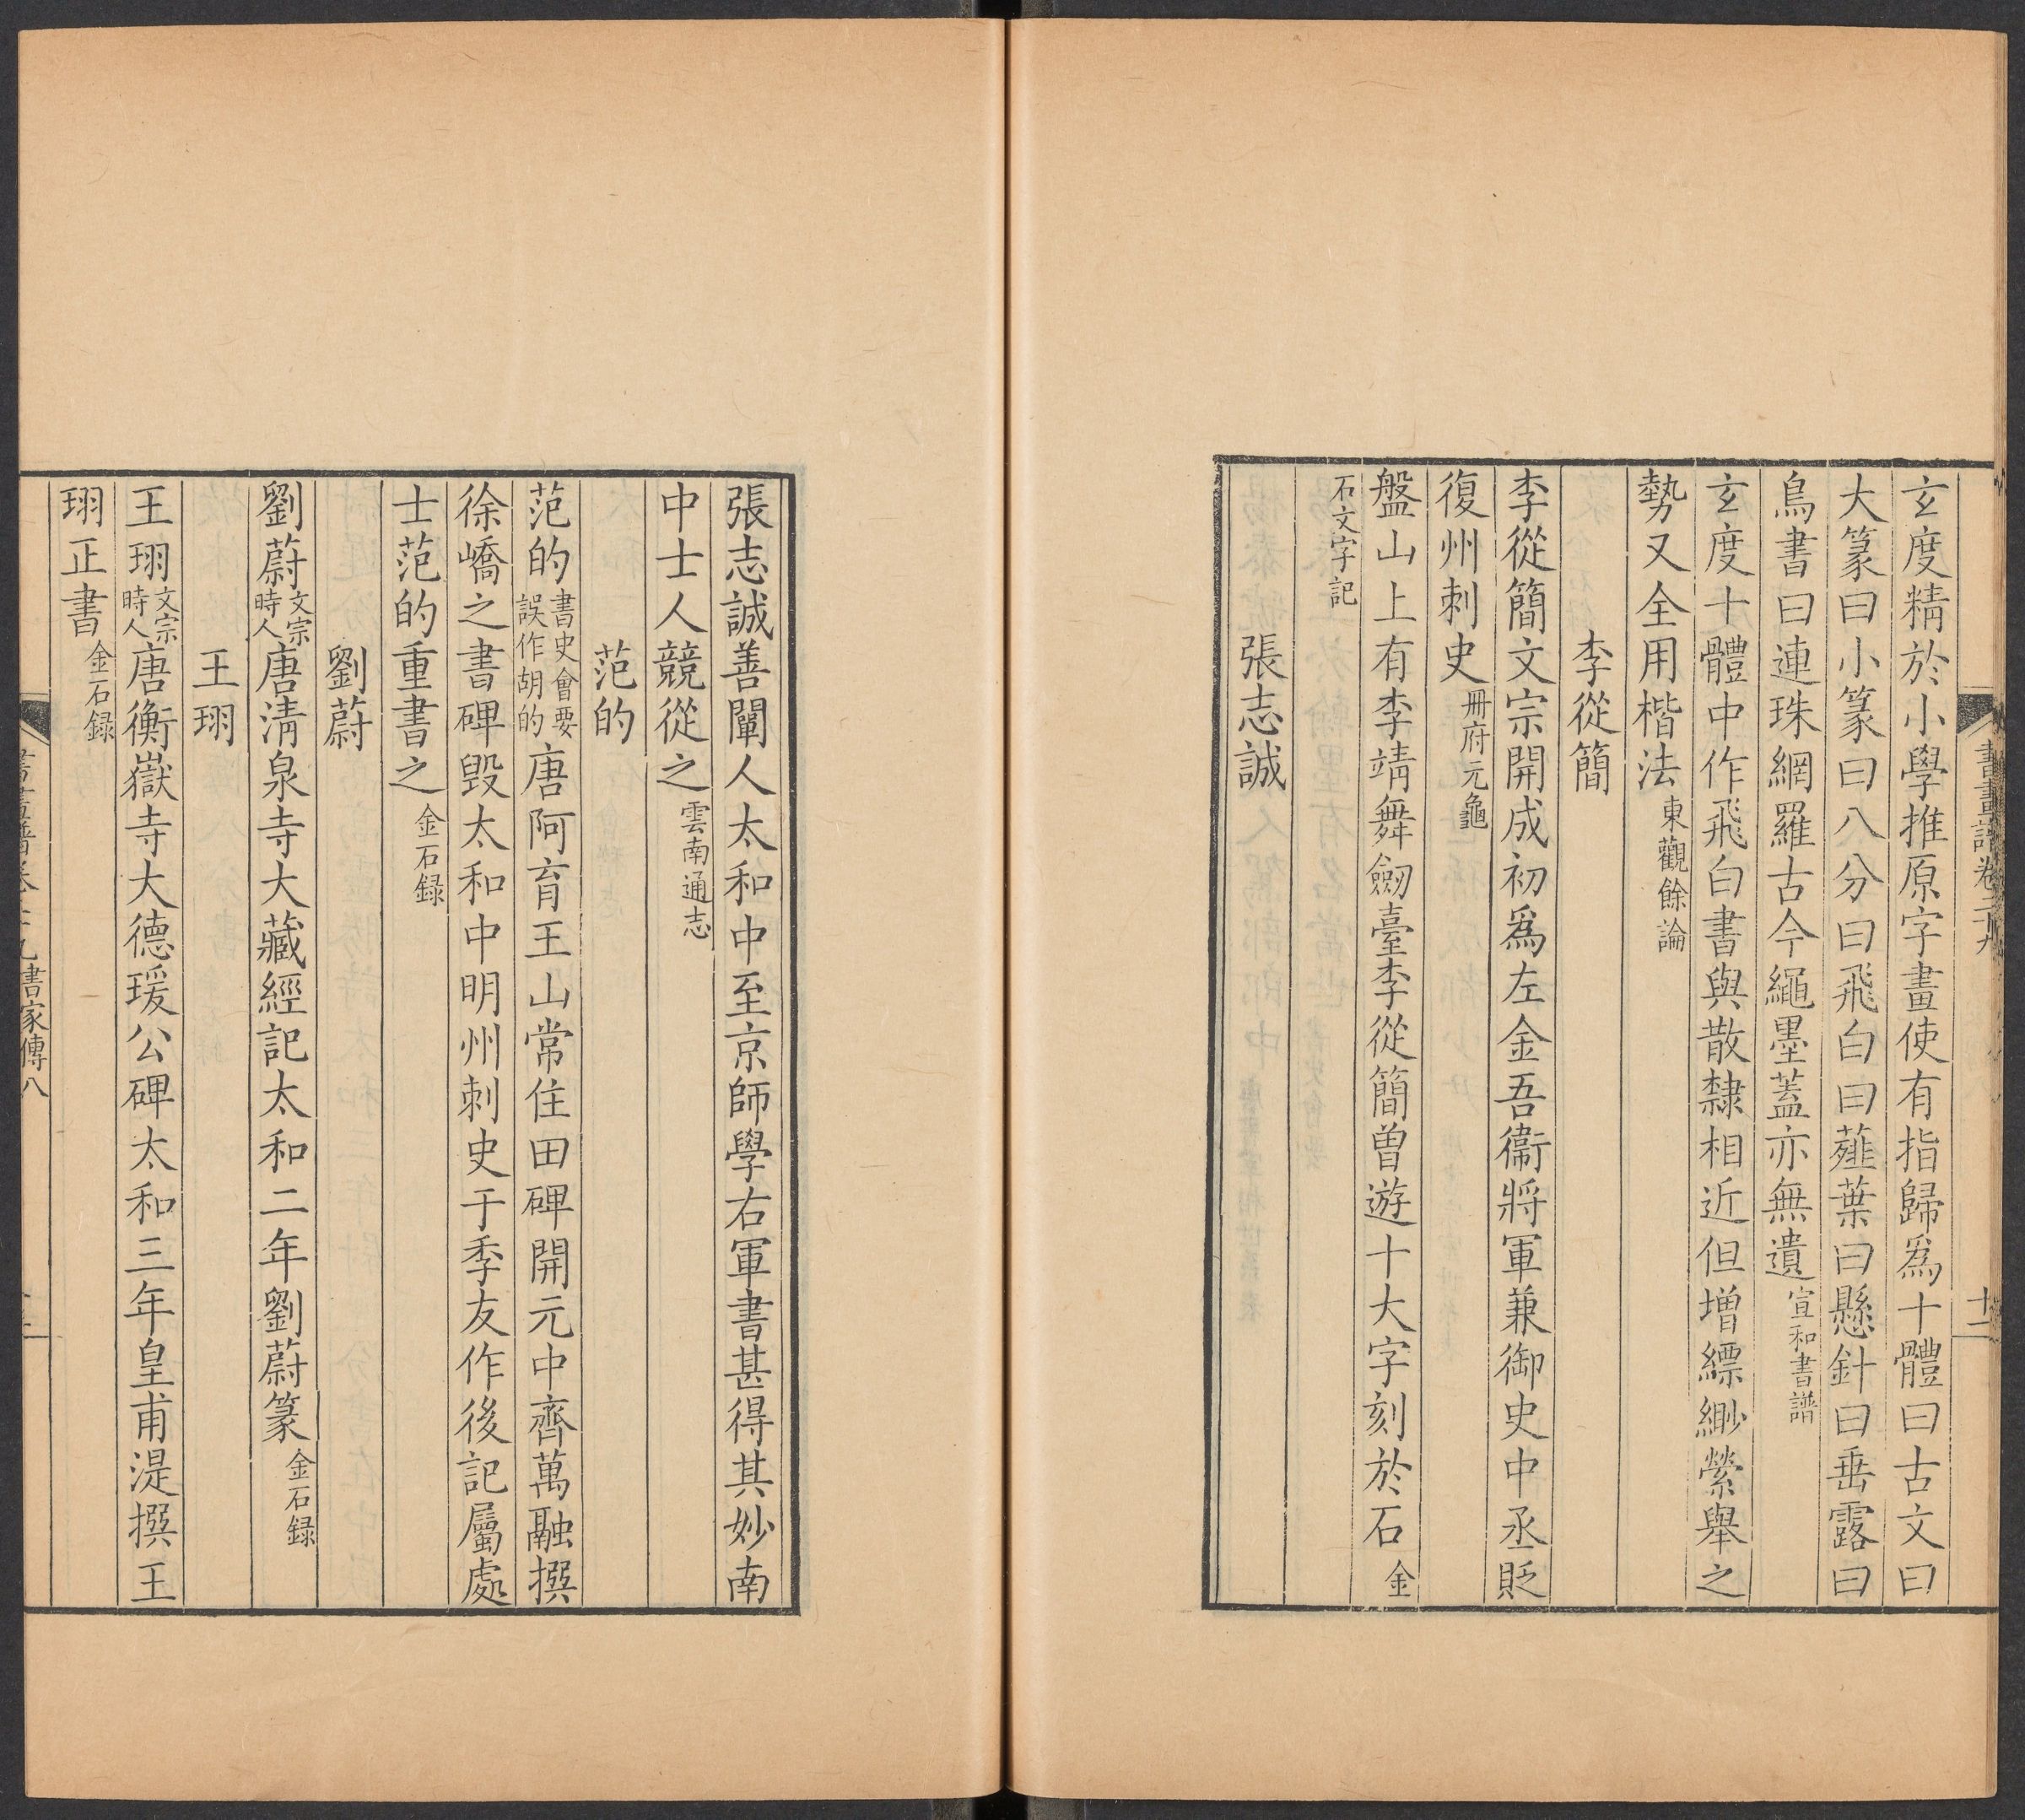 書畫譜卷二十九
十二
玄度精於小學推原字畫使有指歸爲十體曰古文曰
大篆曰小篆曰八分曰飛白曰薤葉曰懸針曰垂露曰
鳥書曰連珠網羅古今繩墨蓋亦無遺宣和書譜
玄度十體中作飛白書與散隸相近但增縹緲縈舉之
勢又全用楷法東觀餘論
李從簡
李從簡文宗開成初爲左金吾衞將軍兼御史中丞貶
復州刺史冊府元龜
盤山上有李靖舞劒臺李從簡曾遊十大字刻於石金
石文字記
張志誠
張志誠善闡人太和中至京師學右軍書甚得其妙南
中士人競從之雲南通志
范的
范的書史會要誤作胡的唐阿育王山常住田碑開元中齊萬融撰
徐嶠之書碑毀太和中明州刺史于季友作後記屬處
士范的重書之金石録
劉蔚
劉蔚文宗時人唐清泉寺大藏經記太和二年劉蔚篆金石録
王珝
王珝文宗時人唐衡嶽寺大德瑗公碑太和三年皇甫湜撰王
珝正書金石録
書家傳八